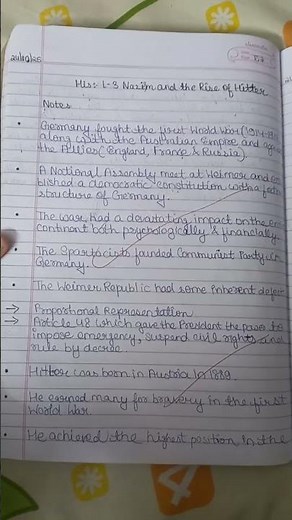 24/10/25
His:- L-3 Nazism and the Rise of Hitler
Notes
Germany fought the first World War (1914-19
along with the Australian Empire and
the Allies (England, France & Russia).
A National Assembly meet at Weimer and es
blished a democratic constitution with a fede
structure of Germany.
The war had a devastating impact on the en
continant both psychologically & financially.
The Spartacists founded Communist Party
Germany.
The Weimer Republic had some inherent defe
→ Proportional Representation
→ Article 48 which gave the President the power to
impose emergency, suspend civil rights and
rule by decree.
Hitler was born in Austria in 1889
He earned many for bravery in the first
World War.
He achieved the highest position in the